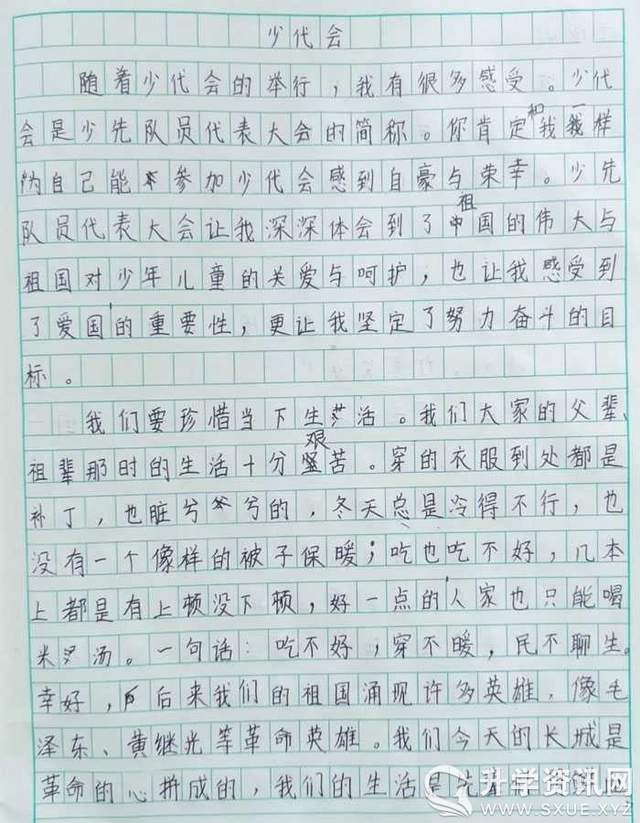 少代会
随着少代会的举行，我有很多感受。少代
会是少先队员代表大会的简称。你肯定和我一样
为自己能参加少代会感到自豪与荣幸。少先
队员代表大会让我深深体会到了祖国的伟大与
祖国对少年儿童的关爱与呵护，也让我感受到
了爱国的重要性，更让我坚定了努力奋斗的目
标。
我们要珍惜当下生活。我们大家的父辈、
祖辈那时的生活十分艰苦。穿的衣服到处都是
补丁，也脏兮兮的，冬天总是冷得不行，也
没有一个像样的被子保暖；吃也吃不好，几本
上都是有上顿没下顿，好一点的人家也只能喝
米汤。一句话：吃不好，穿不暖，民不聊生。
幸好，后来我们的祖国涌现许多英雄，像毛
泽东、黄继光等革命英雄。我们今天的长城是
革命的心拼成的，我们的生活是先
升学资讯网
WWW.SXUE.XYZ